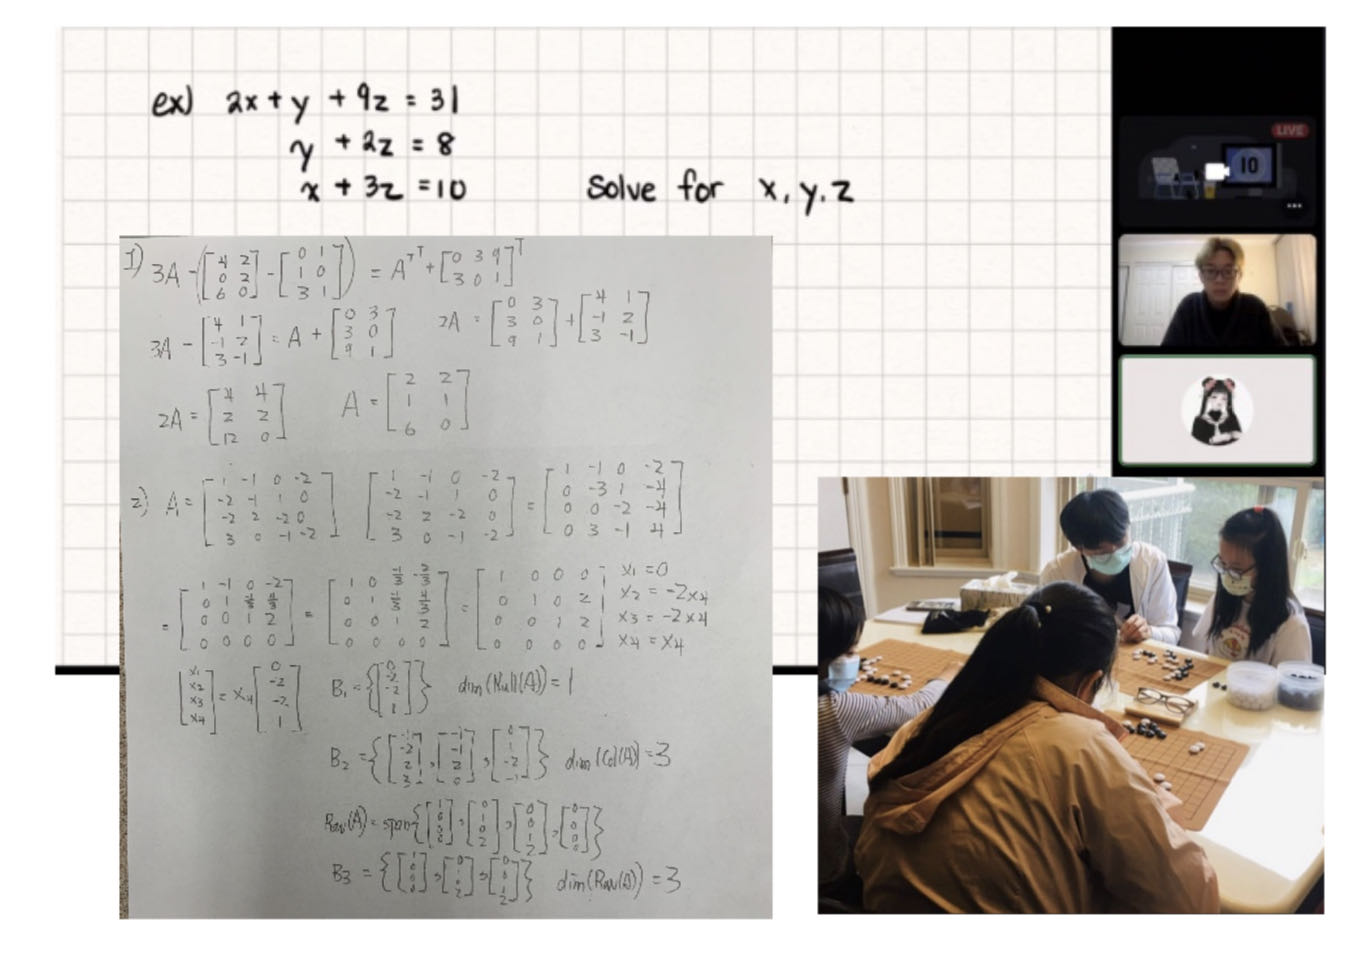 ex) 2x + y + 9z = 31
y + 2z = 8
x + 3z = 10
Solve for x, y, z
LIVE
10
1) 3A - ([4 2; 0 2; 6 0] - [0 1; 1 0; 3 1]) = A^TT + [0 3 9; 3 0 1]^T
3A - [4 1; -1 2; 3 -1] = A + [0 3; 3 0; 9 1]
2A = [0 3; 3 0; 9 1] + [4 1; -1 2; 3 -1]
2A = [4 4; 2 2; 12 0]
A = [2 2; 1 1; 6 0]
2) A = [1 -1 0 -2; -2 -1 1 0; -2 2 -2 0; 3 0 -1 -2]
[1 -1 0 -2; -2 -1 1 0; -2 2 -2 0; 3 0 -1 -2] = [1 -1 0 -2; 0 -3 1 -4; 0 0 -2 -4; 0 3 -1 4]
= [1 -1 0 -2; 0 1 -1/3 4/3; 0 0 1 2; 0 0 0 0] = [1 0 -1/3 -2/3; 0 1 -1/3 4/3; 0 0 1 2; 0 0 0 0] = [1 0 0 0; 0 1 0 2; 0 0 1 2; 0 0 0 0]
x1 = 0
x2 = -2x4
x3 = -2x4
x4 = x4
[x1; x2; x3; x4] = x4 [0; -2; -2; 1]
B1 = {[0; -2; -2; 1]} dim(Null(A)) = 1
B2 = {[-1; -2; 2; 3], [-1; -1; 2; 0], [0; 1; -2; -1]} dim(Col(A)) = 3
Row(A) = span{[1; 0; 0; 0], [0; 1; 0; 2], [0; 0; 1; 2], [0; 0; 0; 0]}
B3 = {[1; 0; 0; 0], [0; 1; 0; 2], [0; 0; 1; 2]} dim(Row(A)) = 3